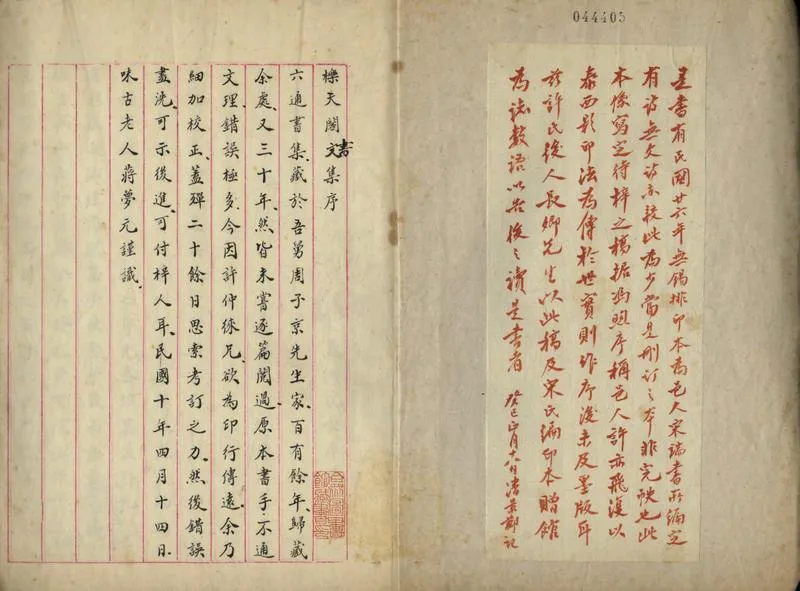 044405
是書有民國廿六年無錫排印本為邑人宋端書所編定
有詩無文詩亦較此為少當是刪訂之本非完帙也此
本係寫定待梓之稿據馮煦序稱邑人許亦飛復以
泰西影印法為傳於世實則作序後未及墨版耳
茲許氏後人長卿先生以此稿及宋氏編印本贈館
為誌數語以告後之讀是書者 癸巳月十日潘景鄭記
櫟天閣文書集序
六通書集、藏於吾舅周子京先生家、百有餘年、歸藏
余處、又三十年、然皆未嘗逐篇閱過、原本書手、不通
文理、錯誤極多、今因許仲兄、欲為印行傳遠、余乃
細加校正、蓋殫二十餘日思索考訂之力、然後錯誤
盡洗、可示後進、可付梓人耳、民國十年四月十四日
味古老人蔣夢元謹識